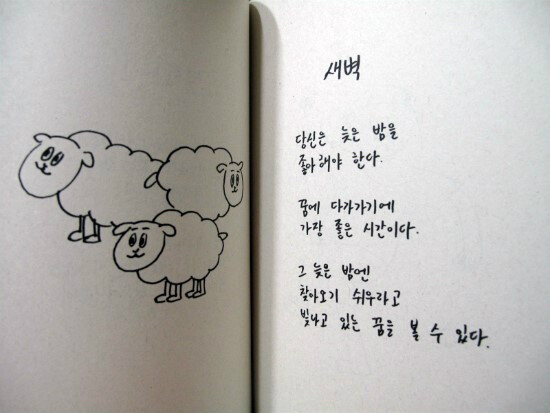 새벽
당신은 늦은 밤을
좋아해야 한다.
꿈에 다가가기에
가장 좋은 시간이다.
그 늦은 밤엔
찾아오기 쉬우라고
빛나고 있는 꿈을 볼 수 있다.